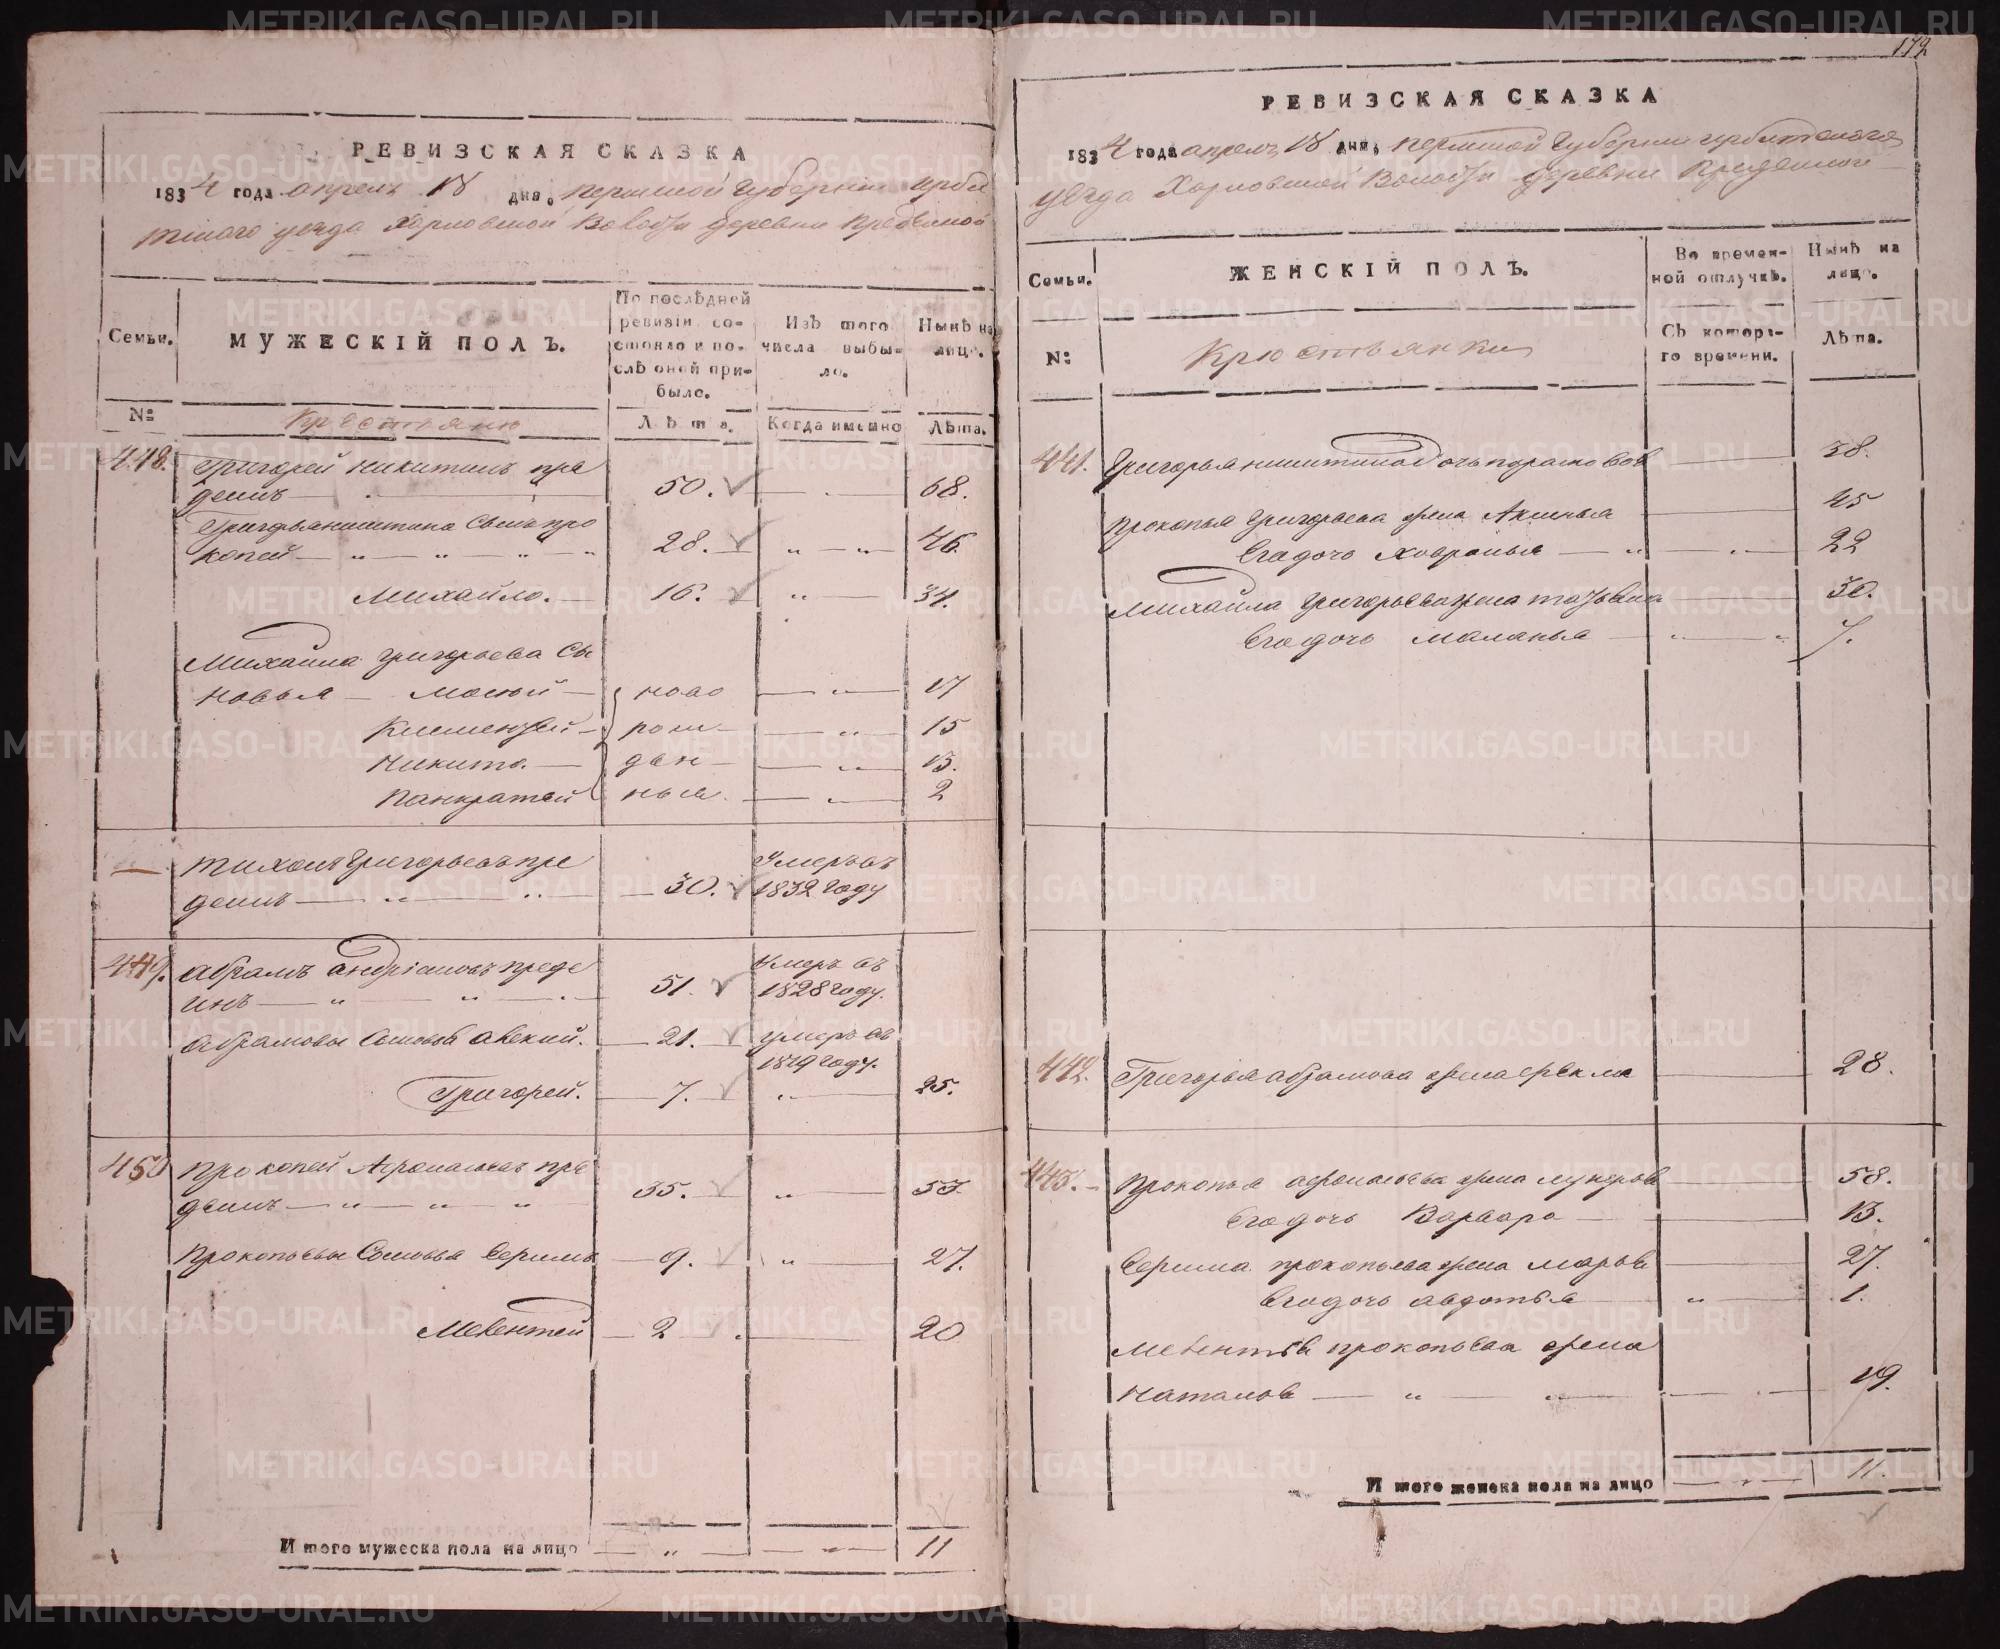 РЕВИЗСКАЯ СКАЗКА
1834 года апреля 18 дня, пермской губернiи ирби
тского уезда Харловской Волости деревни Прединой
Семьи.
МУЖЕСКІЙ ПОЛЪ.
По послѣдней ревизіи состояло и послѣ оной прибыло.
Изъ того числа выбыло.
Нынѣ на лицо.
№
Крестьяне
Лѣта.
Когда именно
Лѣта.
448. Григорей Никитинъ пре
динъ 50. 68.
Григорья никитина Сынъ про
копей 28. 46.
Михайло. 16. 34.
Михайла григорьева Сы
новья ново 17
рож 15
Никита ден 13.
Панкратей ные 2
Тихонъ Григорьевъ пре Умеръ въ
динъ 30. 1832 году
449. абрамъ андріановъ преде Умеръ въ
инъ 51. 1828 году.
абрамовы Сыновья 21. умеръ въ
1819 году.
Григорей. 7. 25.
450 прокопей Афонасьевъ пре
динъ 35. 53
Прокопьевы Сыновья 9. 27.
Мевентей 2 20
И того мужеска пола на лицо 11
172
РЕВИЗСКАЯ СКАЗКА
1834 года апреля 18 дня, пермской Губернии ирбитского
уезда Харловской Волости деревни Прединой
Семьи.
ЖЕНСКІЙ ПОЛЪ.
Во временной отлучкѣ.
Нынѣ на лицо.
№
Крестьянки
Съ котораго времени.
Лѣта.
441. Григорья никитина дочь 38.
Прокопья григорьева жена Аксинья 45
Его дочь 22
Михайла григорьева жена татьяна 36.
Его дочь маланья 7.
442. Григорья абрамова жена фекла 28.
443. Прокопья афонасьева жена лукерья 58.
Его дочь Варвара 13.
прокопьева жена марья 27.
Его дочь авдотья 1.
Мевентья прокопьева жена
Наталья 19.
И того женска пола на лицо 11.
METRIKI.GASO-URAL.RU